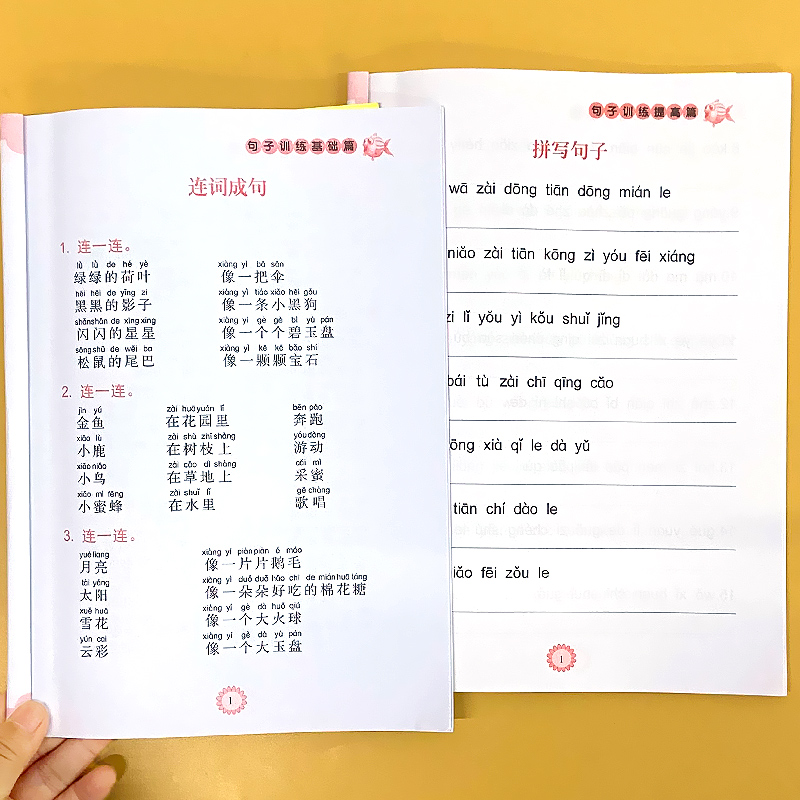 句子训练基础篇
连词成句
1. 连一连。
lǜ lǜ de hé yè xiàng yì bǎ sǎn
绿绿的荷叶 像一把伞
hēi hēi de yǐng zi xiàng yì tiáo xiǎo hēi gǒu
黑黑的影子 像一条小黑狗
shǎn shǎn de xīng xing xiàng yí gè gè bì yù pán
闪闪的星星 像一个个碧玉盘
sōng shǔ de wěi ba xiàng yì kē kē bǎo shí
松鼠的尾巴 像一颗颗宝石
2. 连一连。
jīn yú zài huā yuán lǐ bēn pǎo
金鱼 在花园里 奔跑
xiǎo lù zài shù zhī shàng yóu dòng
小鹿 在树枝上 游动
xiǎo niǎo zài cǎo dì shàng cǎi mì
小鸟 在草地上 采蜜
xiǎo mì fēng zài shuǐ lǐ gē chàng
小蜜蜂 在水里 歌唱
3. 连一连。
yuè liang xiàng yí piàn piàn é máo
月亮 像一片片鹅毛
tài yáng xiàng yì duǒ duǒ hǎo chī de mián huā táng
太阳 像一朵朵好吃的棉花糖
xuě huā xiàng yí gè dà huǒ qiú
雪花 像一个大火球
yún cai xiàng yí gè dà yù pán
云彩 像一个大玉盘
1
句子训练提高篇
拼写句子
wā zài dōng tiān dōng mián le
niǎo zài tiān kōng zì yóu fēi xiáng
zi lǐ yǒu yì kǒu shuǐ jǐng
bái tù zài chī qīng cǎo
xià qǐ le dà yǔ
tiān chí dào le
fēi zǒu le
1